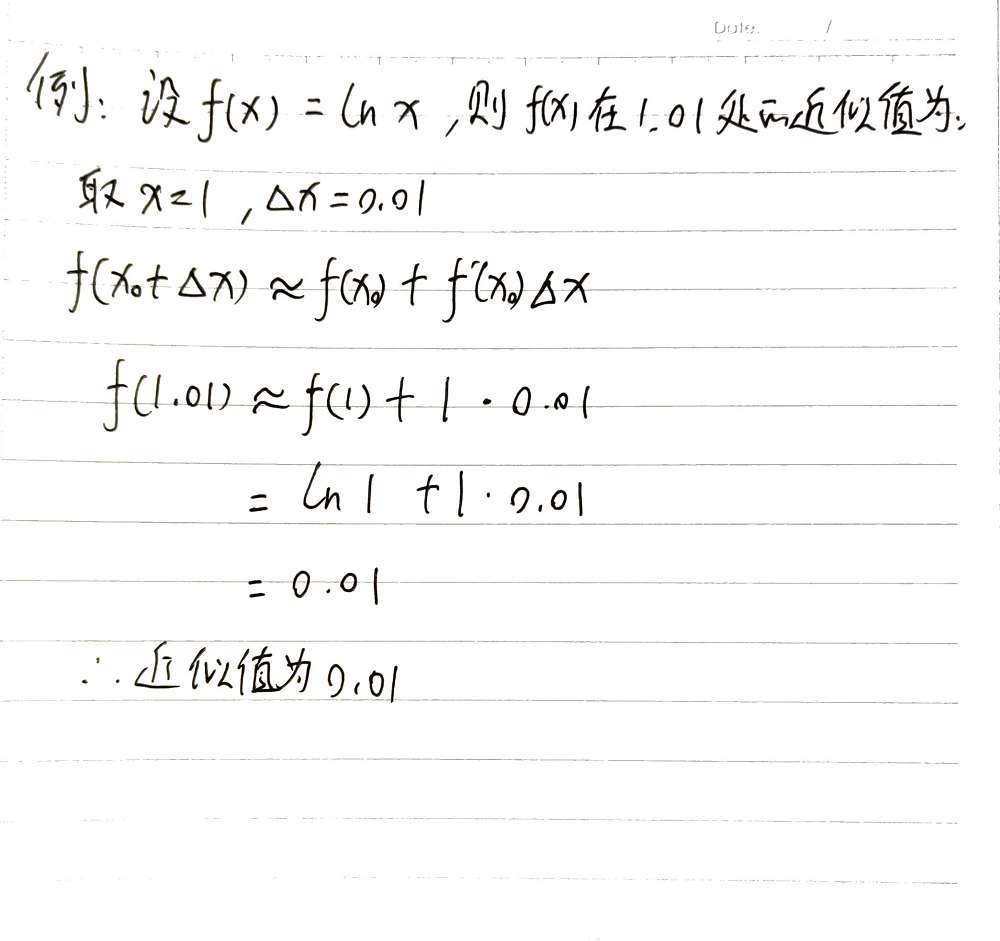 Date. /
例: 设 f(x) = ln x , 则 f(x) 在 1.01 处的近似值为:
取 x=1 , Δx=0.01
f(x₀+Δx) ≈ f(x₀) + f'(x₀)Δx
f(1.01) ≈ f(1) + 1 · 0.01
= ln 1 + 1 · 0.01
= 0.01
∴ 近似值为 0.01